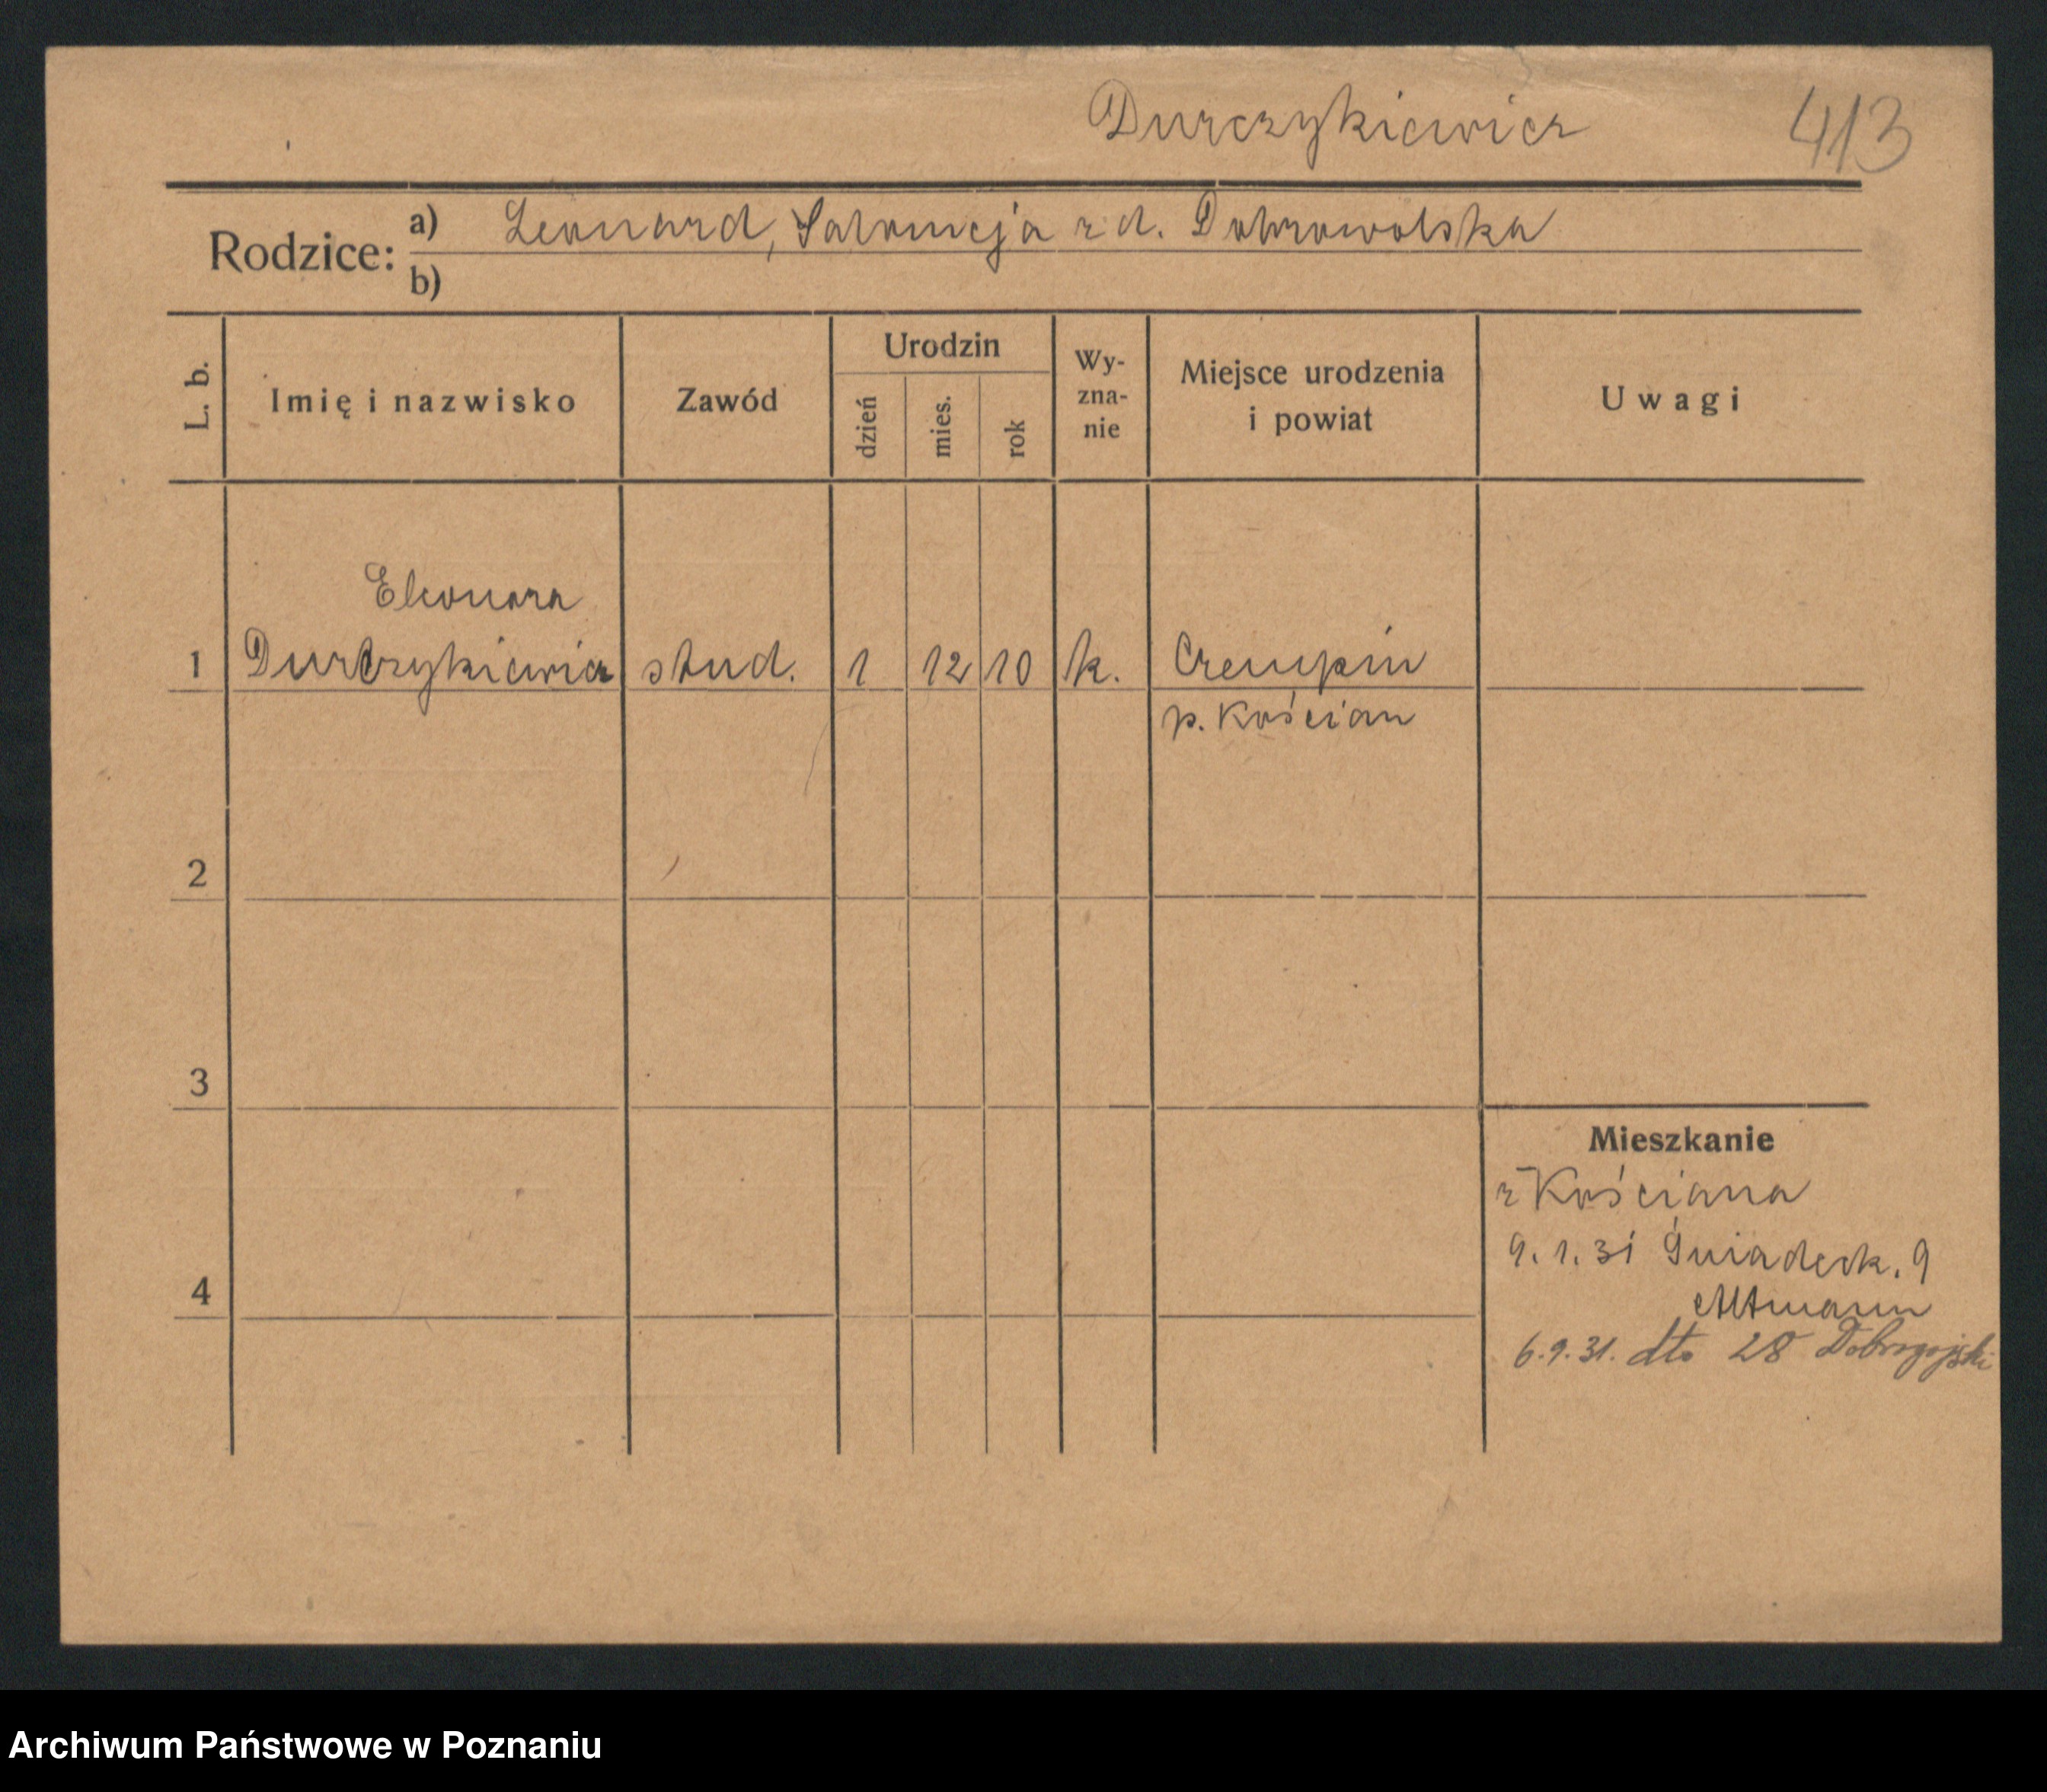 Durczykiewicz 413
Rodzice: a) Leonard, Salomeja z d. Dobrowolska
b)
L. b. Imię i nazwisko Zawód Urodzin dzień mies. rok Wy-zna-nie Miejsce urodzenia i powiat Uwagi
Eleonora
1 Durczykiewicz stud. 1 12 10 k. Czempiń
p. Kościan
2
3
Mieszkanie
z Kościana
9.1.31 Śniadeck. 9
4
Altmann
6.9.31. dto 28 Dobrogojski
Archiwum Państwowe w Poznaniu